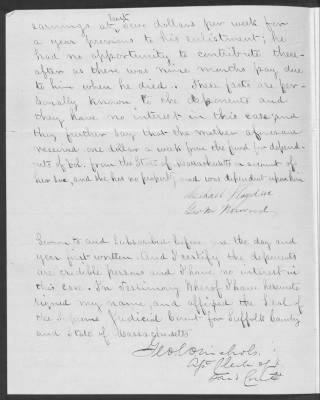 earnings at least two dollars per week for
a year previous to his enlistment; he
had no opportunity to contribute there-
after as there was nine months pay due
to him when he died. These facts are per-
sonally known to the deponents and
they have no interest in this case, and
they further say that the mother aforesaid
received one dollar a week from the fund for depend-
ents of Vol. from the State of Massachusetts on account of
her son, and she has no property and was dependent upon him
Michael
Geo W Norwood
Sworn to and subscribed before me the day and
year first written. And I certify the deponents
are credible persons and I have no interest in
this case. In Testimony Whereof I have hereunto
signed my name, and affixed the Seal of
the Supreme Judicial Court for Suffolk County
and State of Massachusetts
Geo C Nichols
Asst Clerk of
said Court